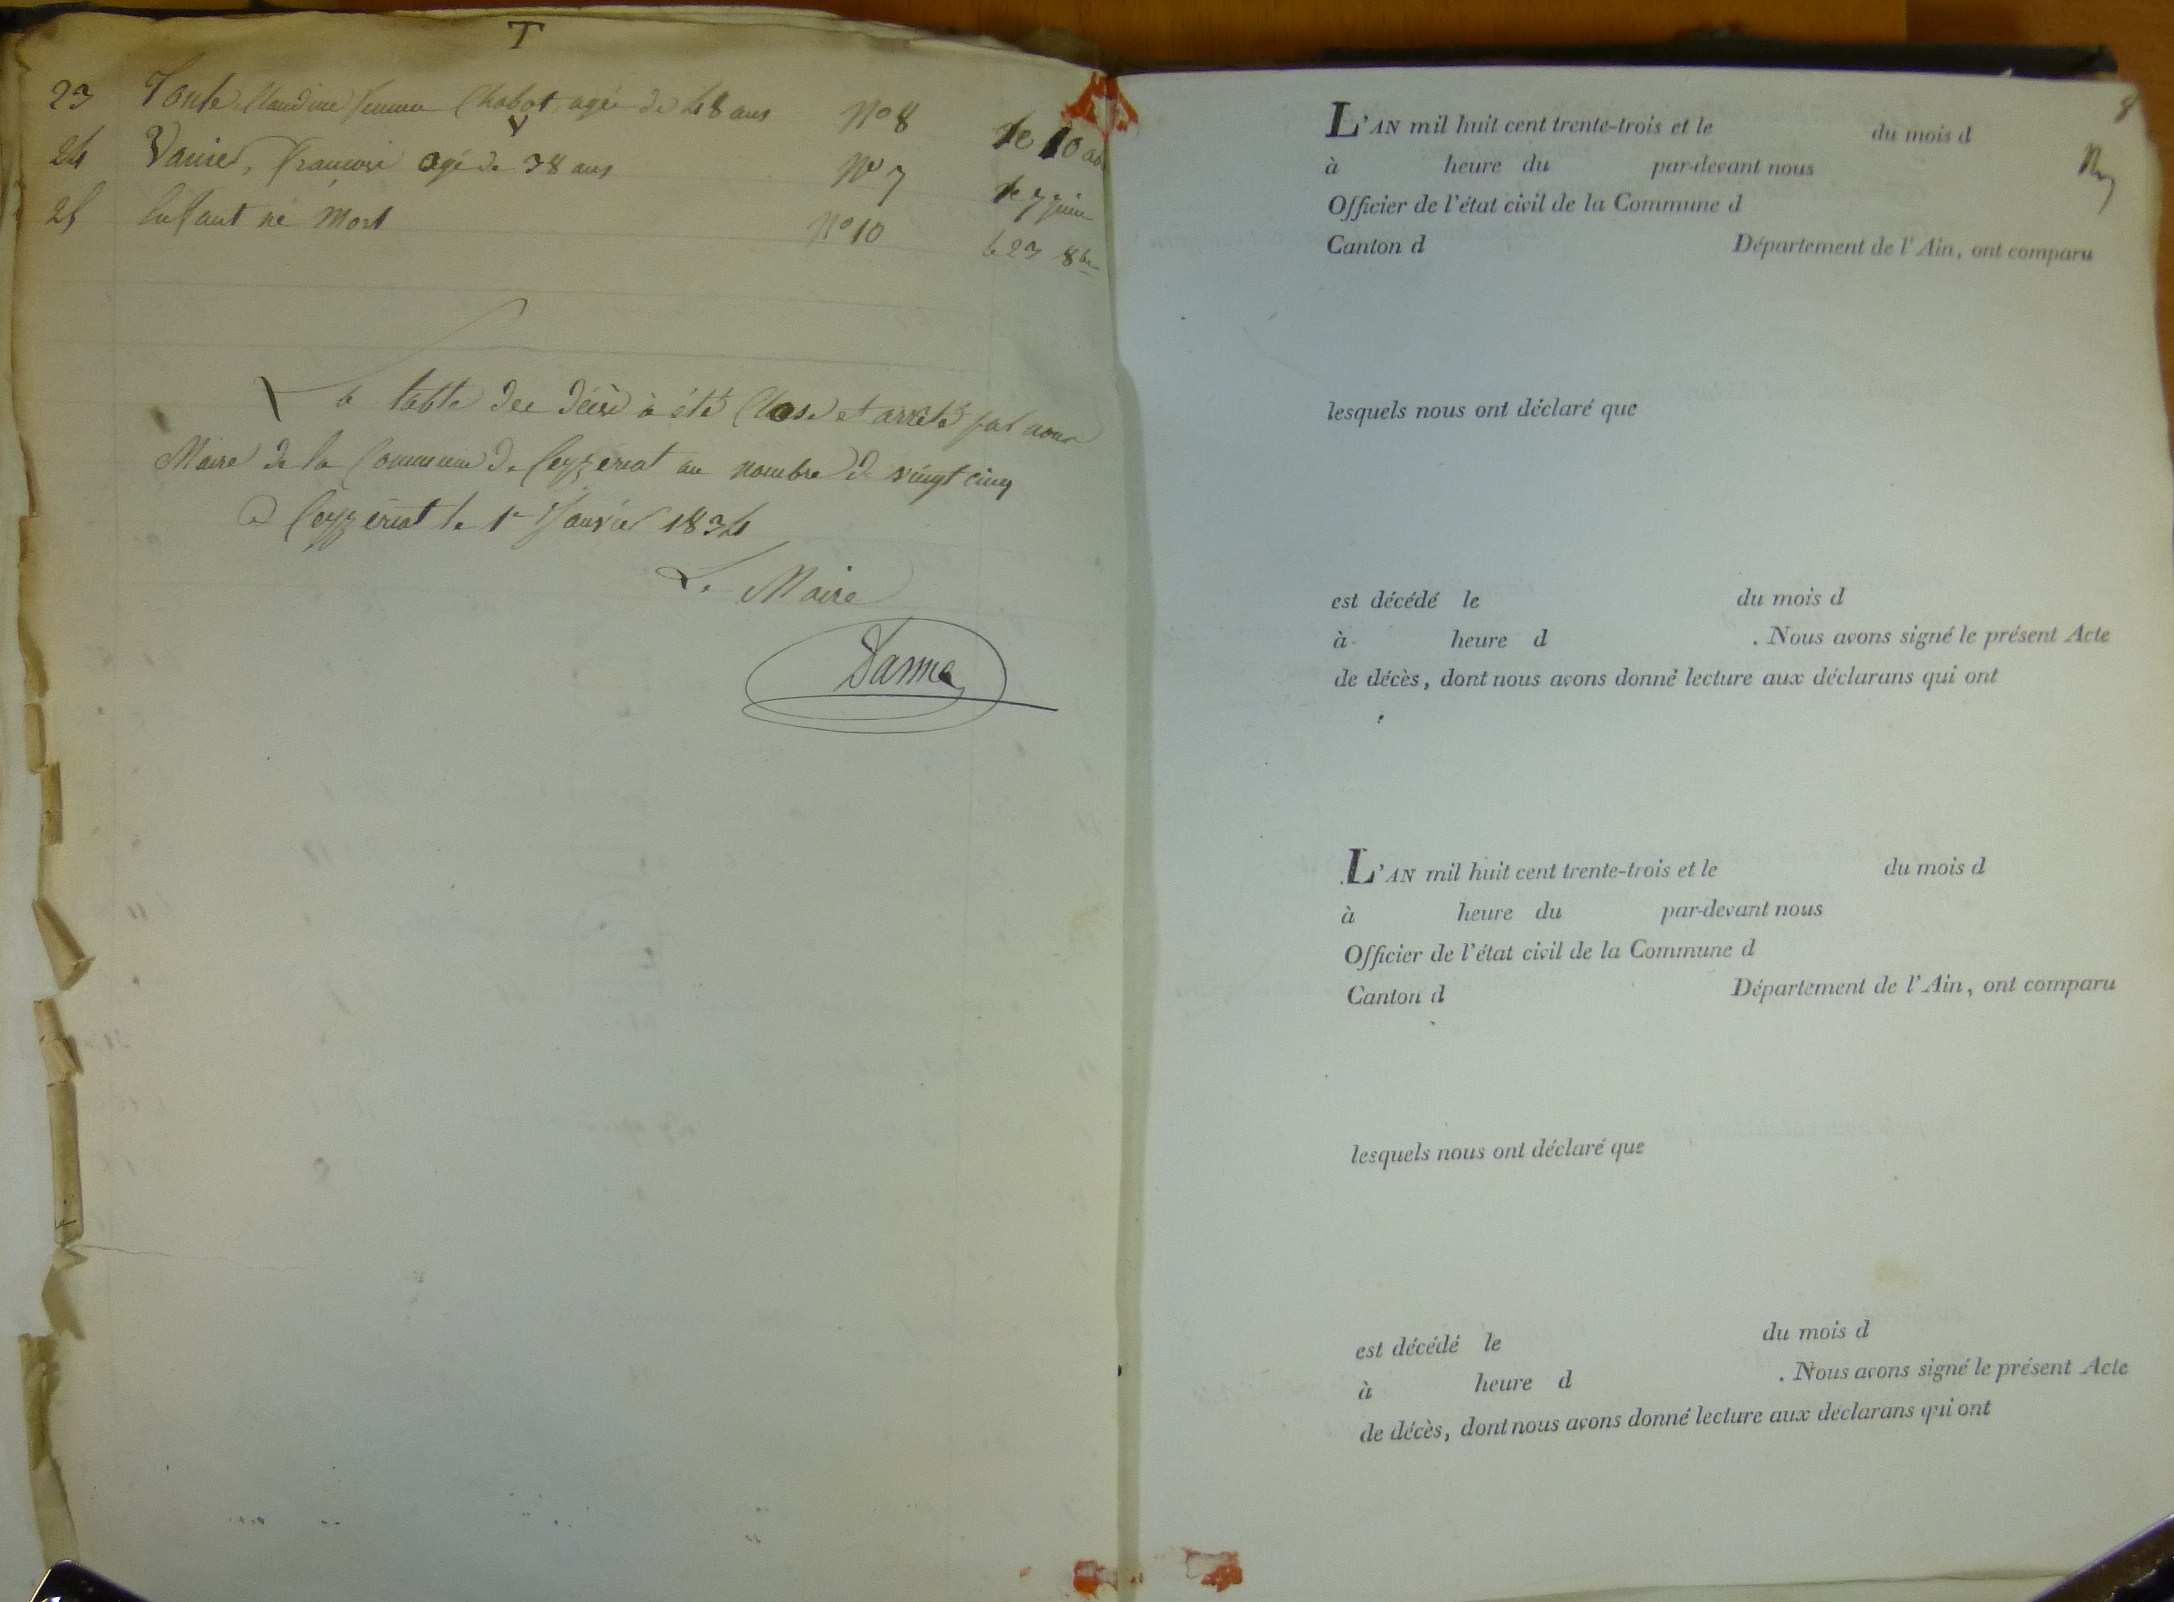 T
23 Tonte Claudine femme Chabot agée de 48 ans No 8 le 10
V
24 Vanier, francois agé de 38 ans No 7 le 7 juin
25 Enfant né Mort No 10 le 23 8bre
La table des décès à été Close et arrêté par nous
Maire de la Commune de Ceyzeriat au nombre de vingt cinq
a Ceyzeriat le 1er Janvier 1834
Le Maire
8
L'AN mil huit cent trente-trois et le du mois d
à heure du par-devant nous
Officier de l'état civil de la Commune d
Canton d Département de l'Ain, ont comparu
lesquels nous ont déclaré que
est décédé le du mois d
à heure d . Nous avons signé le présent Acte
de décès, dont nous avons donné lecture aux déclarans qui ont
L'AN mil huit cent trente-trois et le du mois d
à heure du par-devant nous
Officier de l'état civil de la Commune d
Canton d Département de l'Ain, ont comparu
lesquels nous ont déclaré que
est décédé le du mois d
à heure d . Nous avons signé le présent Acte
de décès, dont nous avons donné lecture aux déclarans qui ont